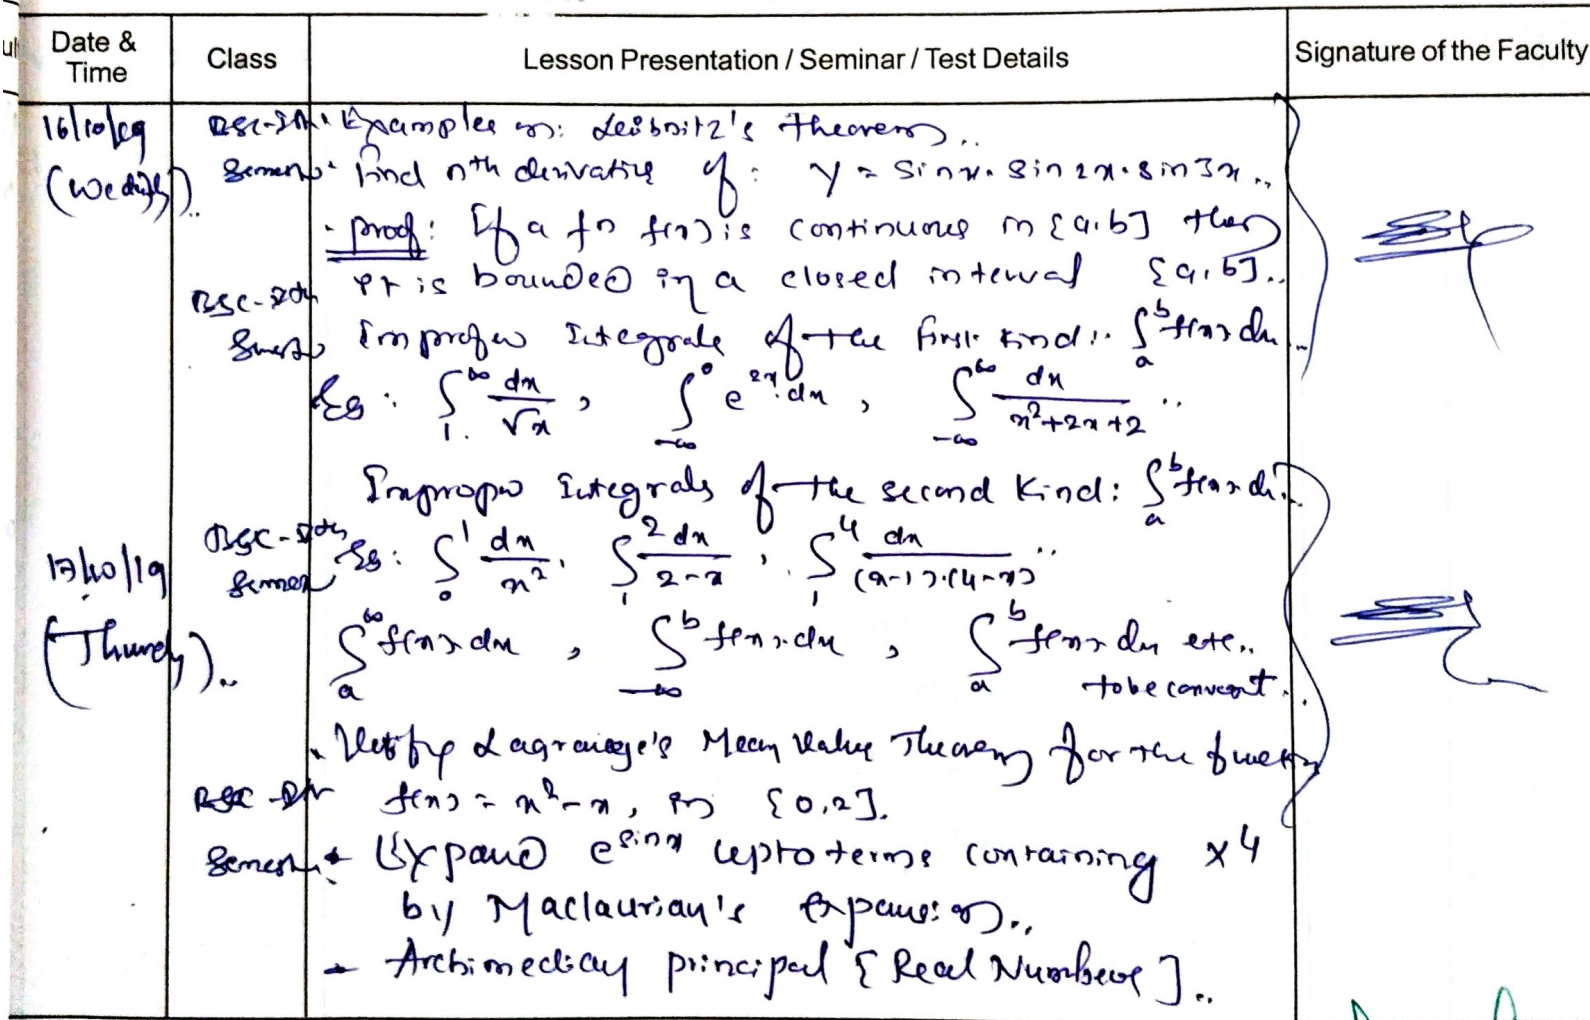 Date & Time Class Lesson Presentation / Seminar / Test Details Signature of the Faculty
16/10/19 BSC- Examples on: Leibnitz's theorem..
(Wed) Semes find nth derivative of : y = sinx. sin 2x. sin3x..
proof: If a fn f(x) is continuous in [a,b] then
BSC-5th it is bounded in a closed interval [a,b]..
Semes Improper Integrals of the first kind:. ∫_a^b f(x) dx..
Eg: ∫_1^∞ dx/√x , ∫_-∞^0 e^2x.dx , ∫_-∞^∞ dx/x²+2x+2 ..
Improper Integrals of the second Kind: ∫_a^b f(x) dx..
17/10/19 BSC-5th Semes Eg: ∫_0^1 dx/x² , ∫_1^2 dx/2-x , ∫_1^4 dx/(x-1).(4-x) ..
(Thurdy).. ∫_a^∞ f(x) dx , ∫_-∞^b f(x) dx , ∫_a^b f(x) dx etc..
to be convergt.
Verify Lagrange's Mean Value Theorem for the functn
BSC f(x) = x²-x, in [0,2].
Semest Expand e^sinx upto terms containing x4
by Maclaurian's Expansion..
- Archimedian principal [Real Numbers]..